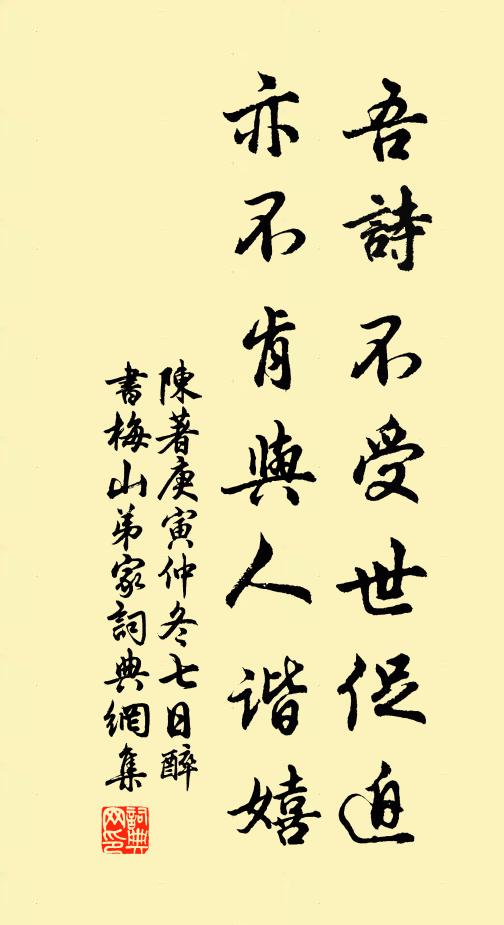 吾詩不受世促迫
亦不肯與人谐嬉
陳著庚寅仲冬七日醉
書梅山弟家詞典網集
詞典網印